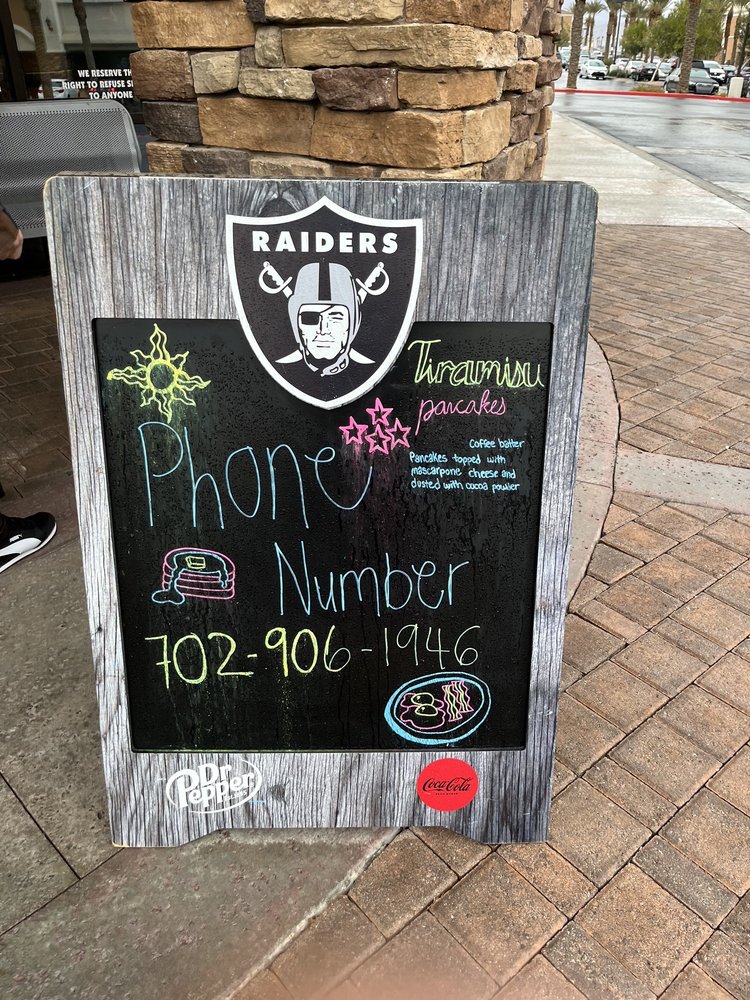 WE RESERVE TH
RIGHT TO REFUSE S
TO ANYONE
RAIDERS
Tiramisu
pancakes
Coffee batter
Pancakes topped with
mascarpone cheese and
dusted with cocoa powder
Phone
Number
702-906-1946
Dr
Pepper
Coca-Cola